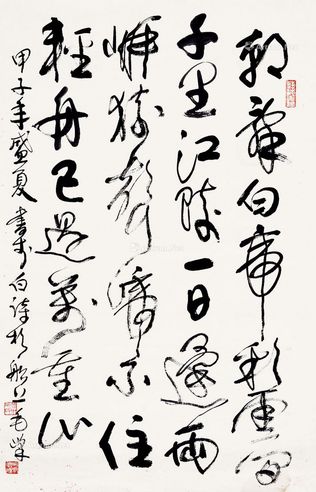 朝辭白帝彩雲間
千里江陵一日還兩
岸猿聲啼不住
輕舟已過萬重山
甲子年盛夏書李白詩於船上